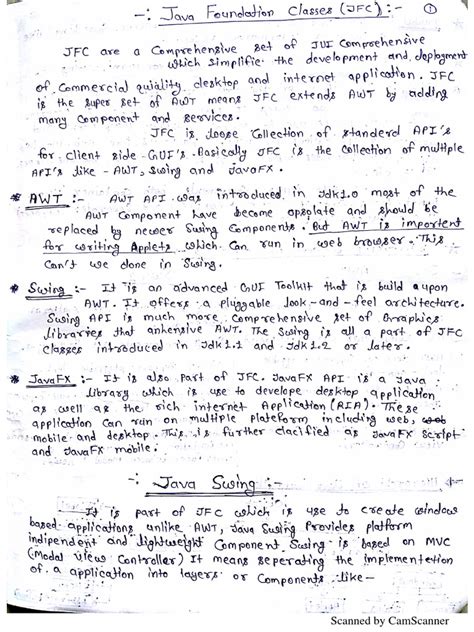 -: Java Foundation Classes (JFC) :- ①
JFC are a Comprehensive set of JUI Comprehensive
which simplific the development and deployment
of Commercial quiality desktop and internet application. JFC
is the super set of AWT means JFC extends AWT by adding
many Component and services.
JFC is loose Collection of standerd API's
for client side GUI's. Basically JFC is the Collection of multiple
API's like - AWT, Swing and JavaFX.
* AWT :- AWT API was introduced in Jdk1.0 most of the
AWT Component have become opsolate and should be
replaced by newer Swing Components. But AWT is importent
for writing Applets which Can run in web browser. This
Can't we done in Swing.
* Swing :- It is an advanced GUI Toolkit that is build a upon
AWT. It offers a pluggable look-and-feel architecture.
Swing API is much more Comprehensive set of Graphics
libraries that anhensive AWT. The Swing is all a part of JFC
classes introduced in Jdk1.1 and Jdk1.2 or later.
* JavaFX :- It is also part of JFC. JavaFX API is a Java
Library which is use to develope desktop application
as well as the rich internet Application (RIA). These
application Can run on multiple plateform including web,
mobile and desktop. This is further clacified as JavaFX Script
and JavaFX mobile.
-: Java Swing :-
It is part of JFC which is use to create window
based applications unlike AWT, Java Swing Provides platform
indipendent and lightweight Component. Swing is based on MVC
(Modal View Controller) It means seperating the implementetion
of a application into layers or Components like-
Scanned by CamScanner